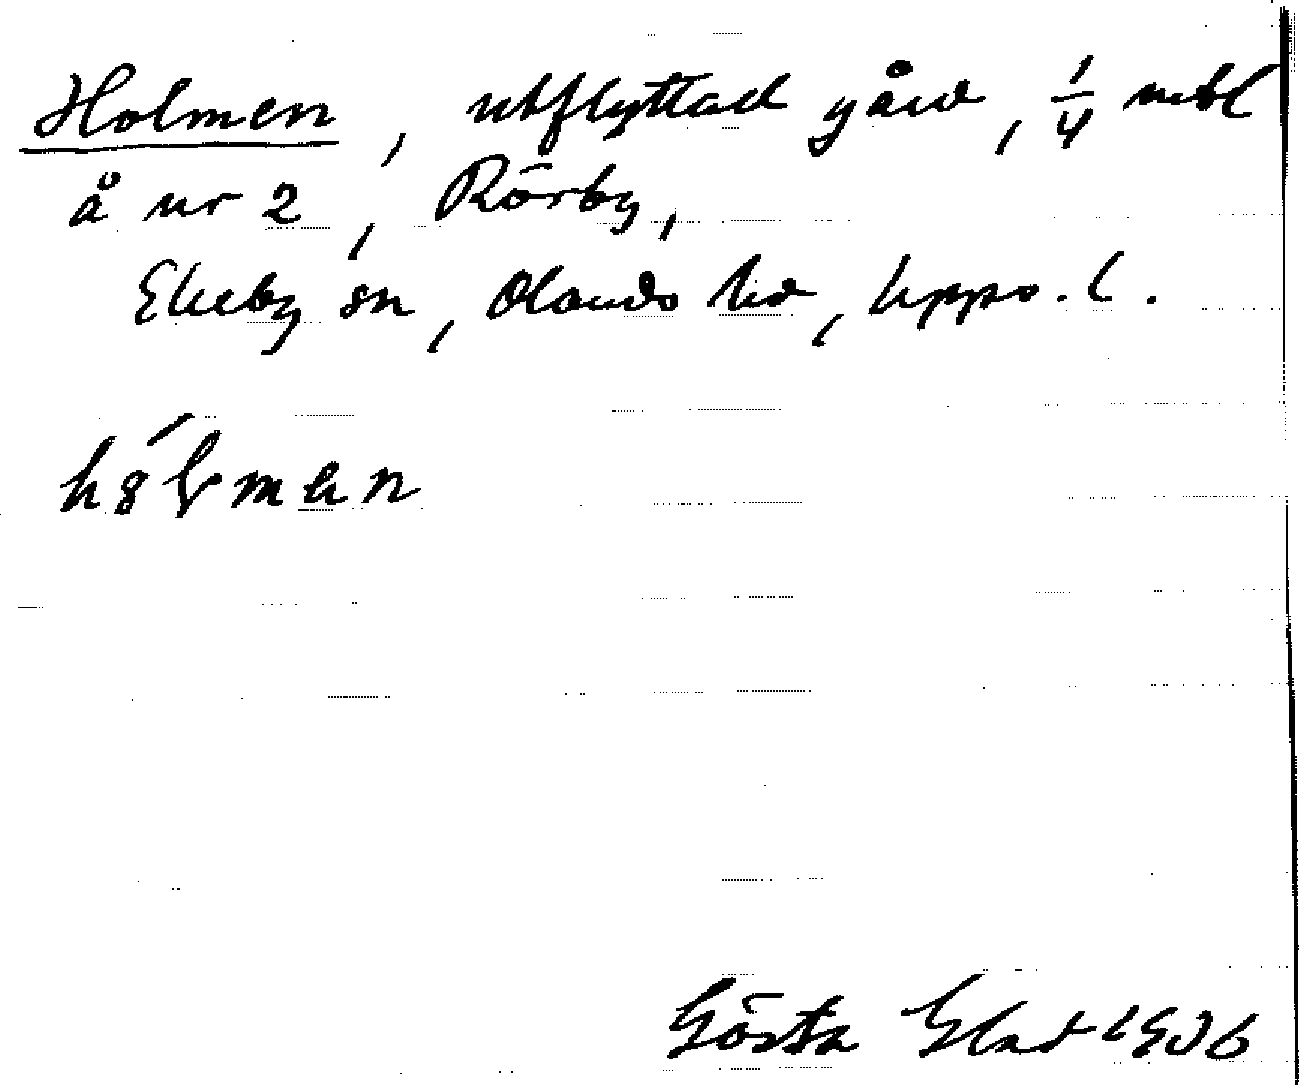 Holmen, utflyttad gård, 1/4 mtl
å nr 2, Rörby,
Ekeby sn, Olands hd, Upps. l.
Gösta Blad 1936